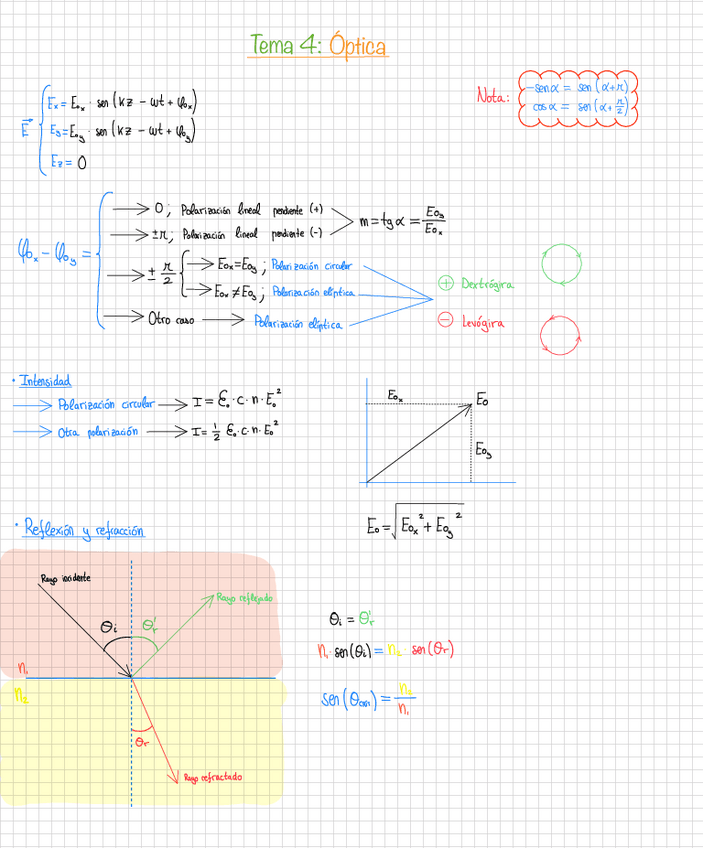 Tema 4: Óptica
E⃗ { Eₓ = E₀ₓ · sen (kz - ωt + φ₀ₓ)
E_y = E₀_y · sen (kz - ωt + φ₀_y)
E_z = 0
Nota: -sen α = sen (α+π)
cos α = sen (α + π/2)
φ₀ₓ - φ₀_y =
→ 0; Polarización lineal pendiente (+)
→ ±π; Polarización lineal pendiente (-)
m = tg α = E₀_y / E₀ₓ
→ ± π/2
→ E₀ₓ = E₀_y; Polarización circular
→ E₀ₓ ≠ E₀_y; Polarización elíptica
→ Otro caso → Polarización elíptica
⊕ Dextrógira
⊖ Levógira
· Intensidad
→ Polarización circular → I = ε₀ · c · n · E₀²
→ Otra polarización → I = 1/2 ε₀ · c · n · E₀²
E₀ₓ
E₀
E₀_y
E₀ = √(E₀ₓ² + E₀_y²)
· Reflexión y refracción
Rayo incidente
Rayo reflejado
θi
θ'r
n₁
n₂
θr
Rayo refractado
θi = θ'r
n₁ · sen(θi) = n₂ sen(θr)
sen(θ) = n₂ / n₁